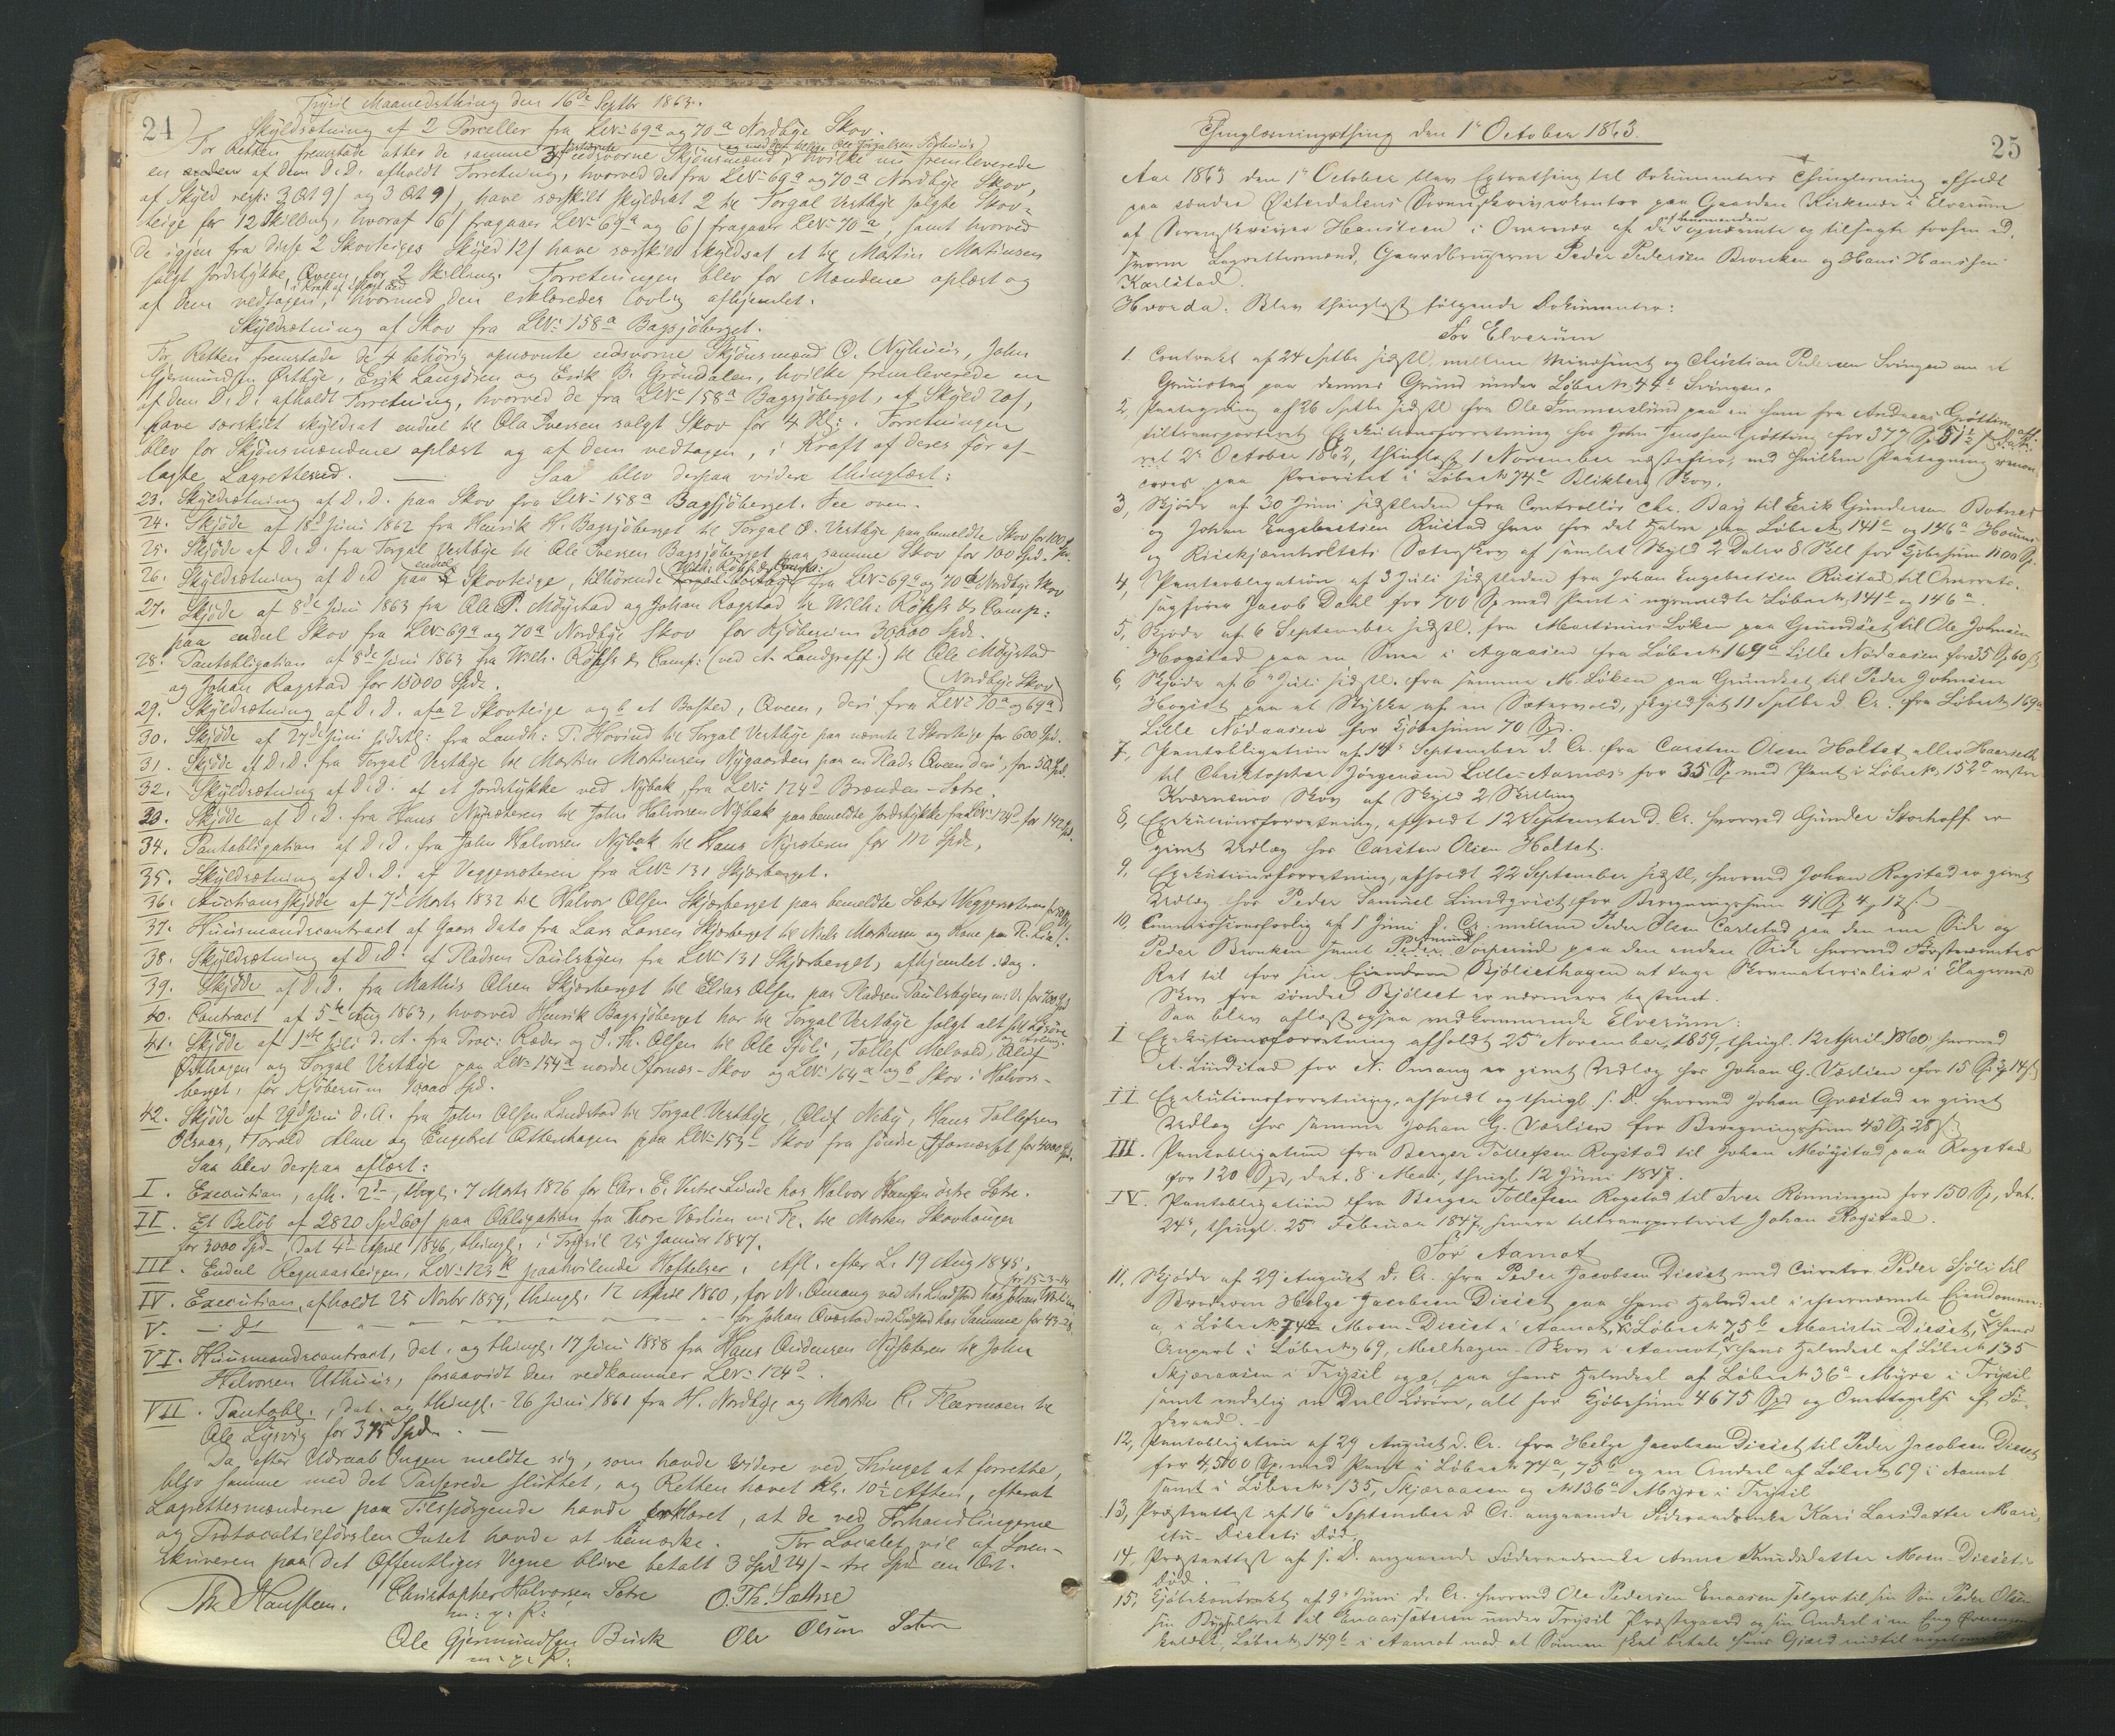 Trysil Maanedsthing den 16de Septbr 1863.
24
Skyldsætning af 2 Porceller fra LNr 69a og 70a Nordbye Skov.
For Retten fremstode atter de samme 3 edsvorne Skjönsmænd, hvilke nu fremleverede
en af dem D. D. afholdt Forretning, hvorved det fra LNr 69a og 70a Nordbye Skov,
af Skyld resp: 3 Ort 9 ſ og 3 Ort 9 ſ, have særskilt skyldsat 2 til Torgal Vestbye solgte Skov-
teige for 12 Skilling, hvoraf 6 ſ fragaaer LNr 69a og 6 ſ fragaaer LNr 70a, samt hvorved
de igjen fra disse 2 Skovteiges Skyld 12 ſ have særskilt skyldsat et til Martin Martinsen
solgt Jordstykke, Qveen, for 2 Skilling. Forretningen blev for Mændene oplæst og
af dem vedtagen, i Kraft af aflagt Eed hvormed den erklæredes lovlig afhjemlet.
Skyldsætning af Skov fra LNr 158a Bagsjöberget.
For Retten fremstode de 4 behörig opnævnte edsvorne Skjönsmænd O. Nyhuus, John
Gjermundsen Östbye, Erik Langören og Erik B. Gröndalen, hvilke fremleverede en
af dem D. D. afholdt Forretning, hvorved de fra LNr 158a Bagsjöberget, af Skyld 20 ſ,
have særskilt skyldsat endeel til Ola Iversen solgt Skov for 4 Sk:. Forretningen
blev for Skjönsmændene oplæst og af dem vedtagen, i Kraft af deres för af-
lagte Lagrettesed. Saa blev derpaa videre thinglæst:
23. Skyldsætning af D. D. paa Skov fra LNr 158a Bagsjöberget. See oven.
24. Skjöde af 18de Juni 1862 fra Henrik H. Bagsjöberget til Torgal O. Vestbye paa bemeldte Skov for 100 Spd.
25. Skjöde af D. D. fra Torgal Vestbye til Ole Iversen Bagsjöberget paa samme Skov for 100 Spd.
26. Skyldsætning af D. D. paa endeel Skovteige, tilhörende Wilh. Röhss & Comp: fra LNr 69a og 70a Nordbye Skov
27. Skjöde af 8de Juni 1863 fra Ole P. Möystad og Johan Rogstad til Wilh: Röhss & Comp:
paa endeel Skov fra LNr 69a og 70a Nordbye Skov for Kjöbesum 30000 Spd.
28. Pantobligation af 8de Juni 1863 fra Wilh. Röhss & Comp: (ved A. Landgraff.) til Ole Möystad
og Johan Rogstad for 15000 Spd.
29. Skyldsætning af D. D. af a 2 Skovteige og b et Bosted, Qveen, deri fra LNr 70a og 69a (Nordbye Skov)
30. Skjöde af 27de Juni sidstl: fra Landh: T. Hovind til Torgal Vestbye paa nævnte 2 Skovteige for 600 Spd.
31. Skjöde af D. D. fra Torgal Vestbye til Martin Martinsen Nygaarden paa en Plads Qveen deri, for 50 Spd.
32. Skyldsætning af D. D. af et Jordstykke ved Nybak, fra LNr 124d Brænden-Sætre.
33. Skjöde af D. D. fra Hans Nysæteren til John Halvorsen Nybak paa bemeldte Jordstykke fra LNr 124d for 142 Spd.
34. Pantobligation af D. D. fra John Halvorsen Nybak til Hans Nysæteren for 112 Spd.
35. Skyldsætning af D. D. af Veggersæteren fra LNr 131 Skjærberget.
36. Auctionsskjöde af 7de Marts 1832 til Halvor Olsen Skjærberget paa bemeldte Sæter Veggersæteren
37. Huusmandscontract af Gaars Dato fra Lars Larsen Skjærberget til Niels Mortensen og Kone paa Pl. Lia.
38. Skyldsætning af D. D. af Pladsen Paulsbyen fra LNr 131 Skjærberget, afhjemlet i Dag.
39. Skjöde af D. D. fra Mathis Olsen Skjærberget til Elias Olsen paa Pladsen Paulsbyen m: V. for 700 Spd
40. Contract af 5te Aug 1863, hvorved Henrik Bagsjöberget har til Torgal Vestbye solgt alt sit Lösöre
41. Skjöde af 1ste Juli d. A. fra Proc: Ræder og J. H. Olsen til Ole Sjöli, Tollef Melvold, Oluf
Östhagen og Torgal Vestbye paa LNr 154a nordre Osfonæs-Skov og LNr 164a og b Skov i Halvors-
berget, for Kjöbesum Spd.
42. Skjöde af 29de Juni d. A. fra John Olsen Lundstad til Torgal Vestbye, Oluf Neby, Hans Tollefsen
Torald Alme og Engebret Ottershagen paa LNr 153c Skov fra söndre for 4000 Spd.
Saa blev derpaa aflæst:
I. Execution, afh. 2de, thingl. 7 Marts 1826 for Chr. E. Vestre-Lunde hos Halvor Hansen östre Sætre.
II. Et Belöb af 2820 Spd 60 ſ paa Obligation fra Thore Værlien m: Fl. til Morten Skovhauger
for 3000 Spd. Dat 4de April 1846, thingl. i Trysil 25 Januar 1847.
III. Endeel Regnaasteigen, LNr 123k paahvilende Heftelser. Afl. efter L. 19 Aug 1845.
IV. Execution, afholdt 25 Novbr 1859, thingl. 12 April 1860, for N. Omang ved A. Lundstad hos Johan Værlien for 15-3-14
V. — D — for Johan Qvæstad ved Lundstad hos Samme for 43-28.
VI. Huusmandscontract, dat. og thingl. 17 Juni 1858 fra Hans Ordensen Nysæteren til John
Halvorsen Uthuus, forsaavidt den vedkommer LNr 124d.
VII. Pantobl., dat. og thingl. 26 Juni 1861 fra H. Nordbye og Morten C. Flermoen til
Ole Lysvig for 375 Spd.
Da, efter Udraab Ingen meldte sig, som havde videre ved Thinget at forrette,
blev samme med det Passerede sluttet, og Retten hævet Kl. 10½ Aften, efterat
Lagrettesmændene paa Tilspörgende havde erklæret, at de ved Forhandlingerne
og Protocoltilförslen Intet havde at bemærke. For Localet vil af Soren-
skriveren paa det Offentliges Vegne blive betalt 3 Spd 24 ſ – tre Spd een Ort.
Th. Hansteen. Christopher Halvorsen Sætre O. Th. Sættre
m: p. P:
Ole Gjermundsen Burk Ole Olsen Sætre
m. p. P:
25
Thinglæsningsthing den 1e October 1863.
Aar 1863 den 1e October blev Extrathing til Dokumenters Thinglæsning afholdt
paa söndre Österdalens Sorenskriverkontor paa Gaarden Kirkenær i Elverum
af Sorenskriver Hansteen i Overvær af de opnævnte og tilsagte forhen ed-
svorne Lagrettesmænd, Gaardbrugerne Peder Pedersen Bronken og Hans Hanssen
Karlstad.
Hvorda. Blev thinglæst fölgende Dokumenter:
For Elverum
1. Contrakt af 24 Sptbr sidstl. mellem og Christian Pedersen Svingen om et
Gruustag paa dennes Grund under Löbenr 44 Svingen.
2, Paategning af 26 Sptbr sidstl fra Ole Emmerslund paa en ham fra Andreas Grötting
tiltransporteret Exekutionsforretning hos John Jensen Grötting for 377 Sp 51½ ſ
2 October 1862, thinglæst 1 November næstefter, ved hvilken Paategning renon-
ceres paa Prioritet i Löbenr 74e Blikberg Skov.
3, Skjöde af 30 Juni sidstleden fra Controllör Chr. Bay til Erik Gundersen Botner
og Johan Engebretsen Rustad hver for det Halve paa Löbenr 141e og 146a
og Sæterskov af samlet Skyld 2 Daler 8 Skill for Kjöbesum 1100 Sp.
4, Pantobligation af 3 Juli sidstleden fra Johan Engebretsen Rustad til Overrets-
sagförer Jacob Dahl for 700 Sp med Pant i nysmeldte Löbenr 141e og 146a.
5, Skjöde af 6 September sidstl. fra Martinus Löken paa Grundset til Ole Johnsen
Hogstad paa en i Agaasen fra Löbenr 169a Lille Nödaasen for 35 Sp 60 ſ
6, Skjöde af 6 Juli sidstl. fra samme M. Löken paa Grundset til Peder Johnsen
Hogstad paa et Stykke af en Sætervold, skyldsat 11 Sptbr d. Ar. fra Löbenr 169a
Lille Nödaasen for Kjöbesum 70 Spd.
7, Pantobligation af 14 September d. Ar. fra Carsten Olsen Holtet, alles Haarseth
til Christopher Jörgensen Lille-Aarnæs for 35 Sp med Pant i Löbenr 152a vestre
Kværnmo Skov af Skyld 2 Skilling
8, Exekutionsforretning, afholdt 12 September d. Ar. hvorved Gunder Storhoff er
givet Udlæg hos Carsten Olsen Holtet.
9, Exekutionsforretning, afholdt 22 September sidstl, hvorved Johan Rogstad er givet
Udlæg hos Peder Samuel Lindqvist for Beregningssum 41 Sp 4 ₰ 12 ſ
10, Commissionsforlig af 1 Juni d. Ar. mellem Peder Olsen Carlstad paa den ene Side og
Peder Bronken samt Torperud paa den anden Side hvorved Förstnævntes
Ret til for sin Eiendom Bjölsethagen at tage Skovmaterialier i
Skov fra söndre Bjölset er nærmere bestemt.
Saa blev aflæst ogsaa vedkommende Elverum:
I Exekutionsforretning afholdt 25 November 1859, thingl. 12 April 1860, hvorved
A. Lundstad for N. Omang er givet Udlæg hos Johan G. Værlien for 15 Sp 3 ₰ 14 ſ
II Exekutionsforretning, afholdt og thingl. s. D. hvorved Johan Qvæstad er givet
Udlæg hos samme Johan G. Værlien for Beregningssum 43 Sp 28 ſ.
III. Pantobligation fra Berger Tollefsen Rogstad til Johan Möystad paa Rogstad
for 120 Spd, dat. 8 Mai, thingl. 12 Juni 1847.
IV. Pantobligation fra Berger Tollefsen Rogstad til Iver Rönningen for 150 Sp, dat.
24, thingl. 25 Februar 1847, senere tiltransporteret Johan Rogstad.
For Aamot
11. Skjöde af 29 August d. Ar. fra Peder Jacobsen Diesét med Curator Peder Sjöli til
Broderen Helge Jacobsen Diesét paa hans Halvdeel i efternævnte Eiendomme:
a, i Löbenr 74a Moen-Diesét i Aamot, b, Löbenr 75b Maristu-Diesét, c, hans
Anpart i Löbenr 69, Melhagen-Skov i Aamot, d, hans Halvdeel af Löbenr 135
Skjæraasen i Trysil og e, paa hans Halvdeel af Löbenr 36a Myre i Trysil
samt endelig en Deel Lösöre, alt for Kjöbesum 4675 Spd og Overtagelse af Fö-
deraad. –
12, Pantobligation af 29 August d. Ar. fra Helge Jacobsen Diesét til Peder Jacobsen Diesét
for 4,500 Sp. med Pant i Löbenr 74a, 75b og en Andeel af Löbenr 69 i Aamot
samt i Löbenr 135, Skjæraasen og Nr 136a Myre i Trysil
13, Præsteattest af 16 September d. Ar. angaaende Föderaadsenke Kari Larsdatter Mari-
stu-Diesets Död,
14, Præsteattest af s. D. angaaende Föderaadsenke Anne Knudsdatter Moen-Diesets
Död.
15, Kjöbekontrakt af 9 Juni d. Ar. hvorved Ole Pedersen Enaasen sælger til sin Sön Peder Olsen
sin Bygselret til Enaassæteren under Trysil Præstegaard og sin Andeel i en Eng
kaldet, Löbenr 149b i Aamot mod at Sönnen skal betale hans Gjæld indtil